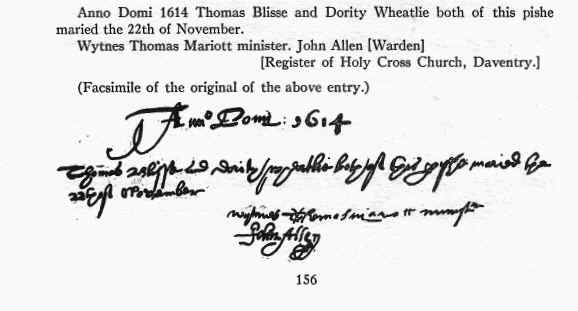 Anno Domi 1614 Thomas Blisse and Dority Wheatlie both of this pishe
maried the 22th of November.
Wytnes Thomas Mariott minister. John Allen [Warden]
[Register of Holy Cross Church, Daventry.]
(Facsimile of the original of the above entry.)
Anno Domi: 1614
Thomas Blisse and Dority Wheatlie both of this pishe maried the
22th of November
wytnes Thomas Mariott minister
John Allen
156